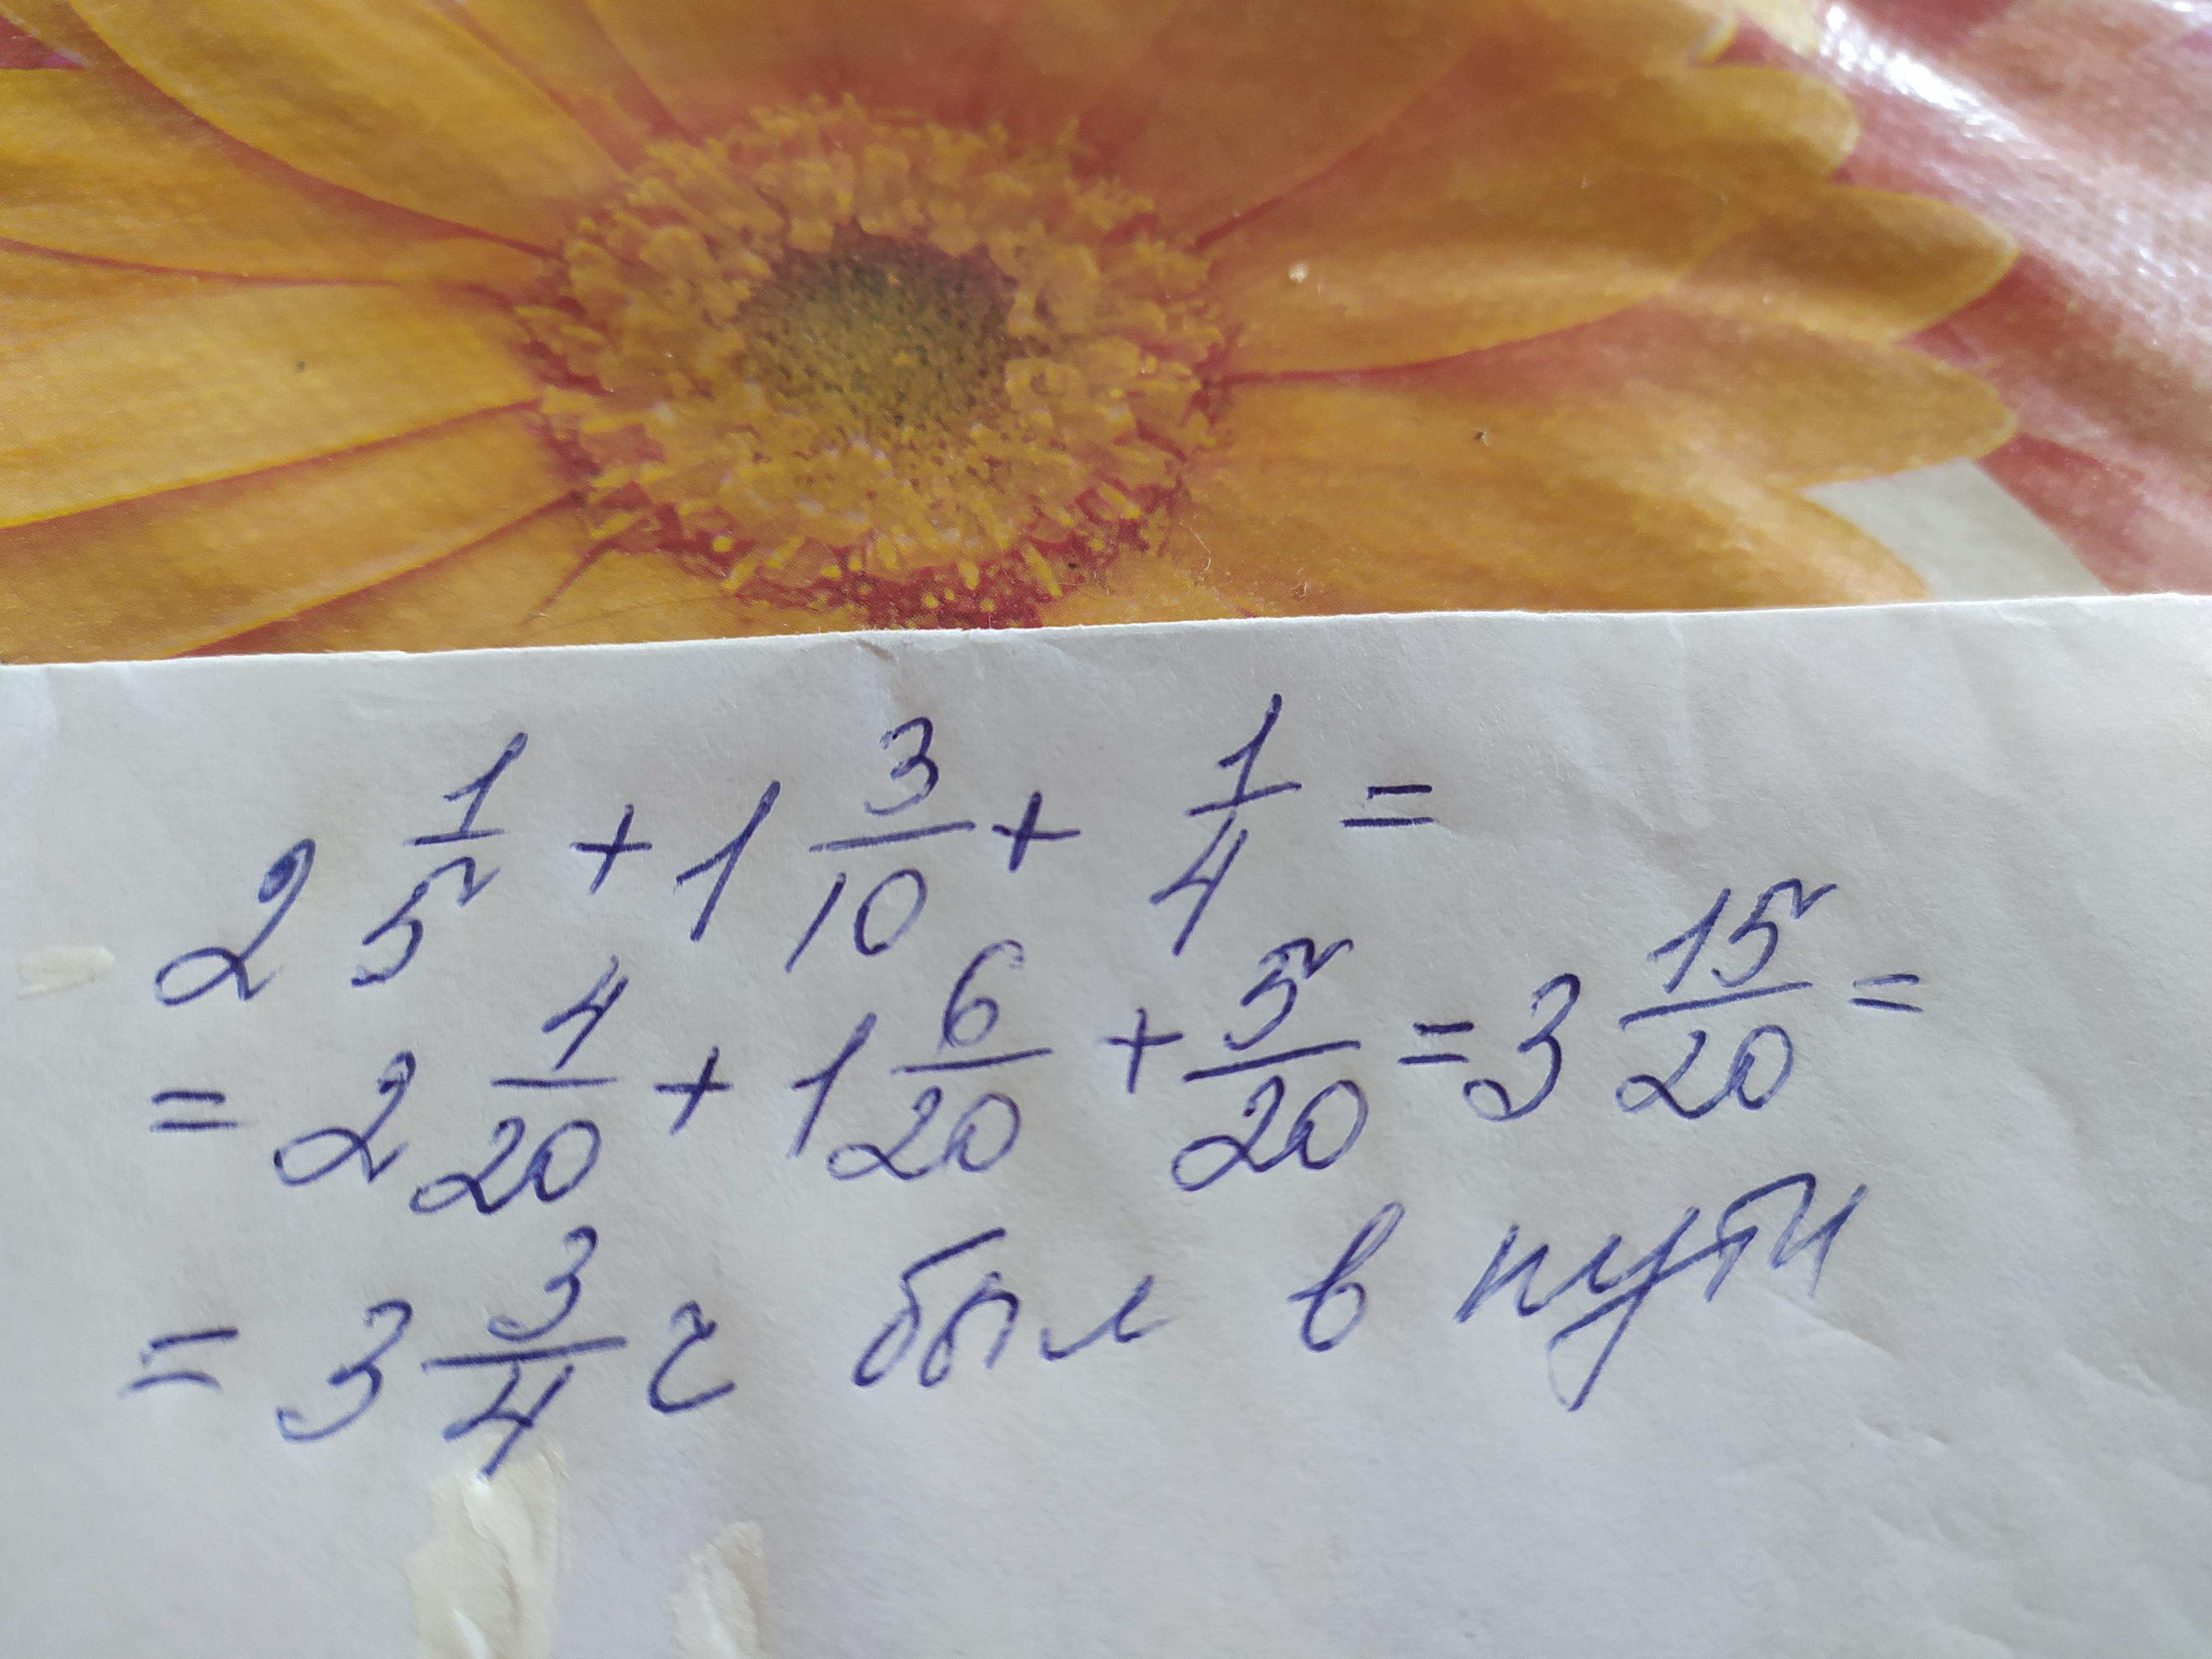 2 1/5 + 1 3/10 + 1/4 =
= 2 4/20 + 1 6/20 + 5/20 = 3 15/20 =
= 3 3/4 ч был в пути